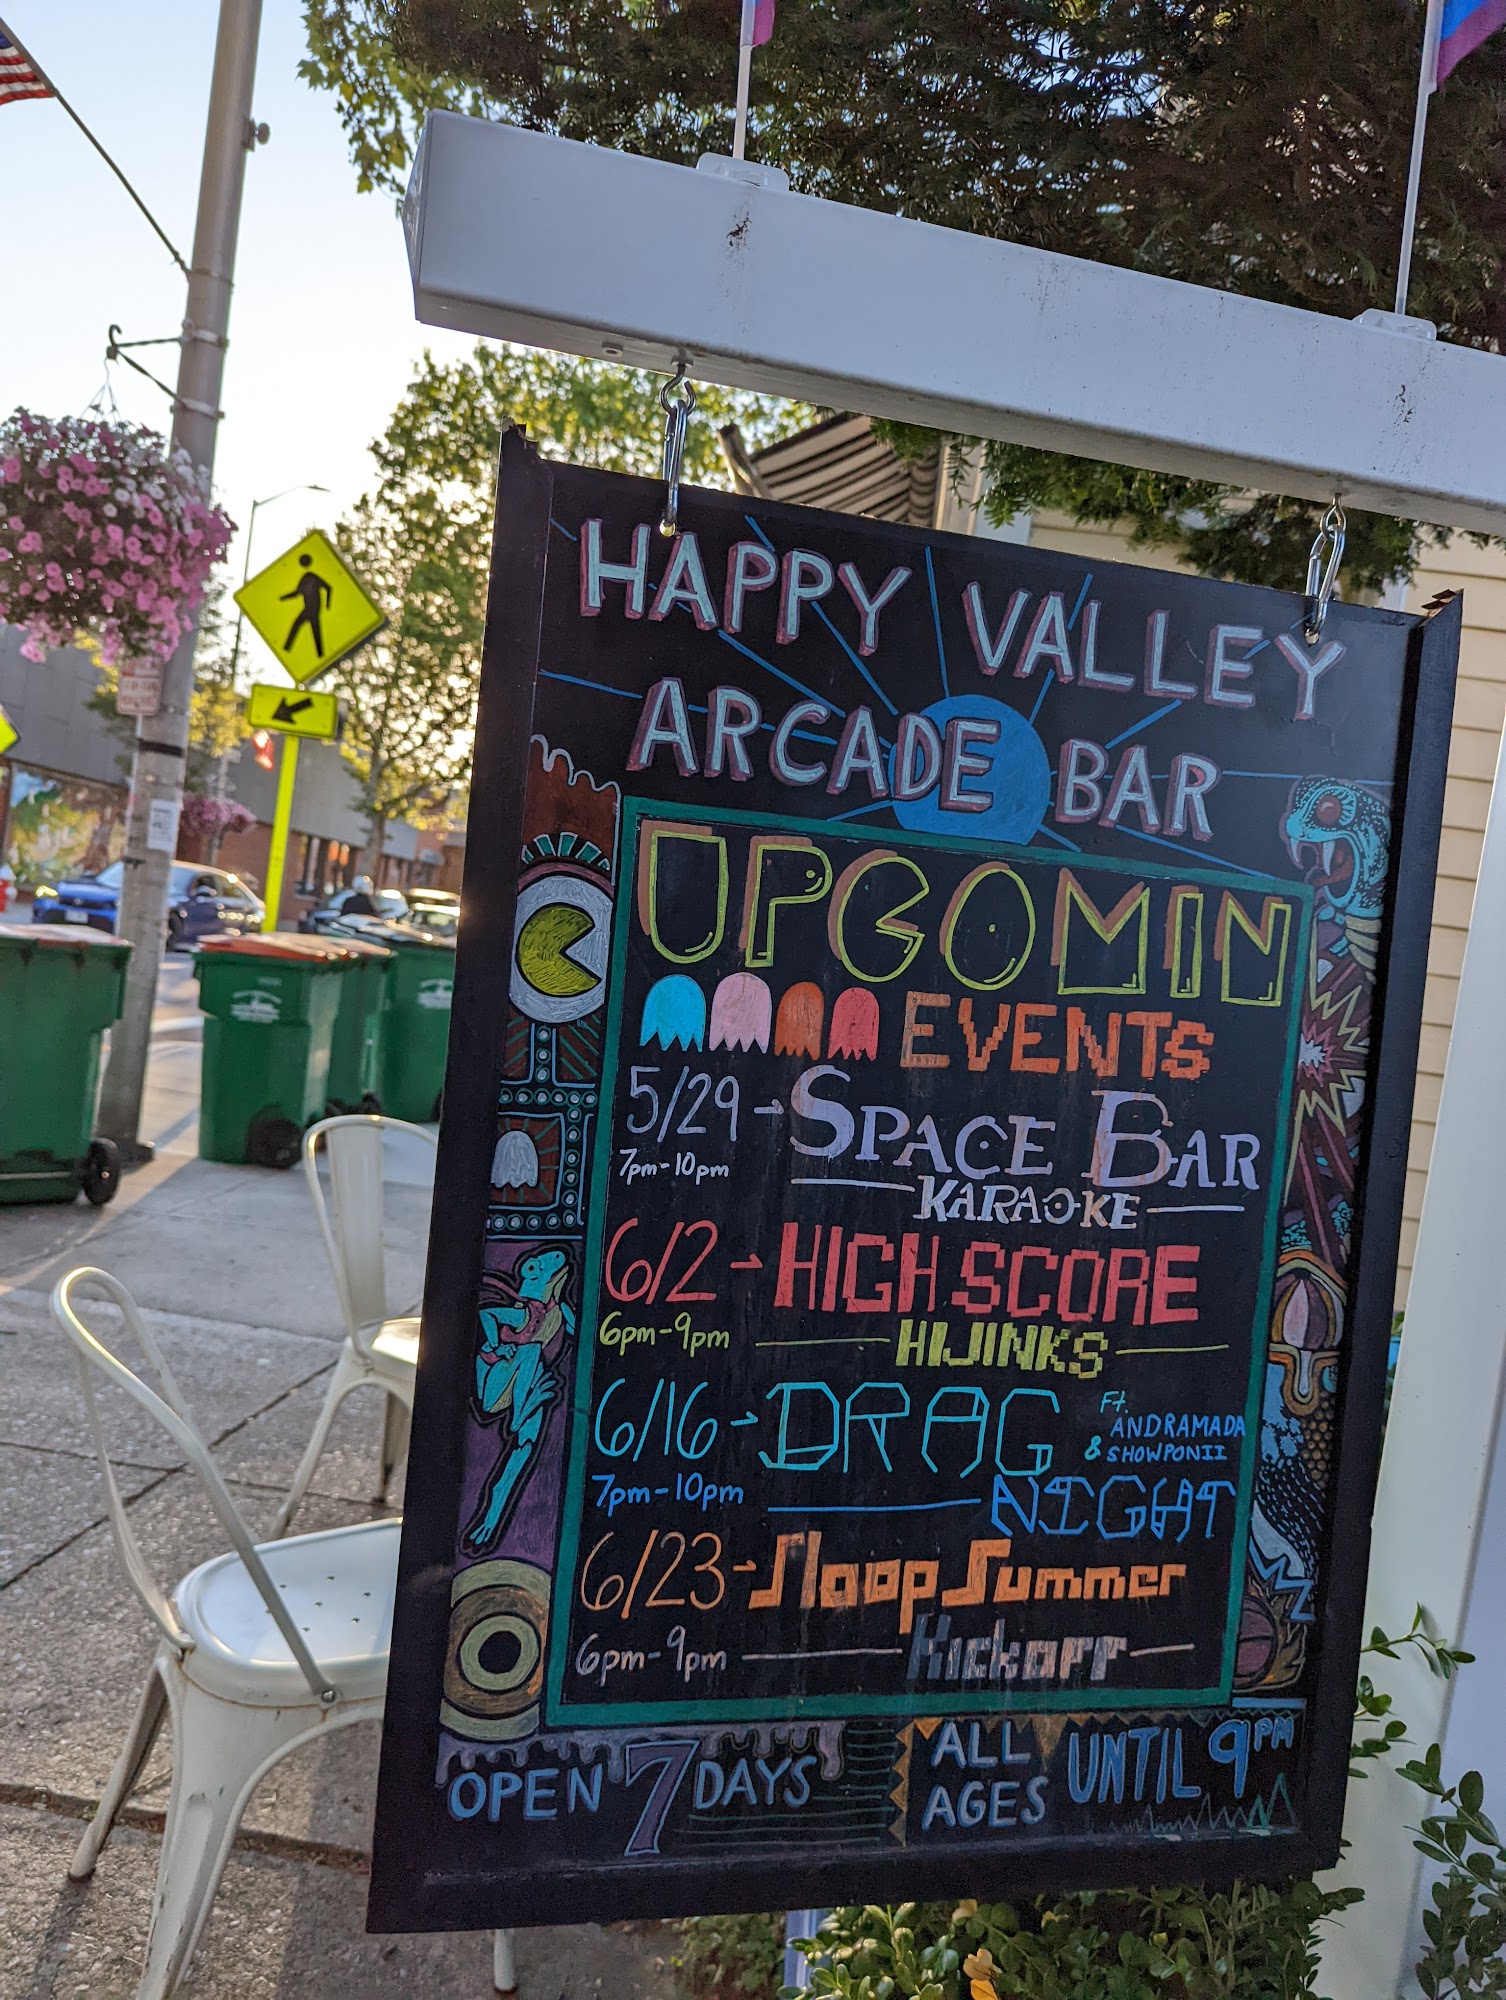 HAPPY VALLEY
ARCADE BAR
UPCOMIN
EVENTS
5/29 - SPACE BAR
7pm-10pm
KARAOKE
6/2 - HIGH SCORE
6pm-9pm
HIJINKS
6/16 - DRAG
Ft.
ANDRAMADA
& SHOWPONII
7pm-10pm
NIGHT
6/23 - Sloop Summer
6pm-9pm
Kickoff
OPEN 7 DAYS
ALL
AGES
UNTIL 9PM